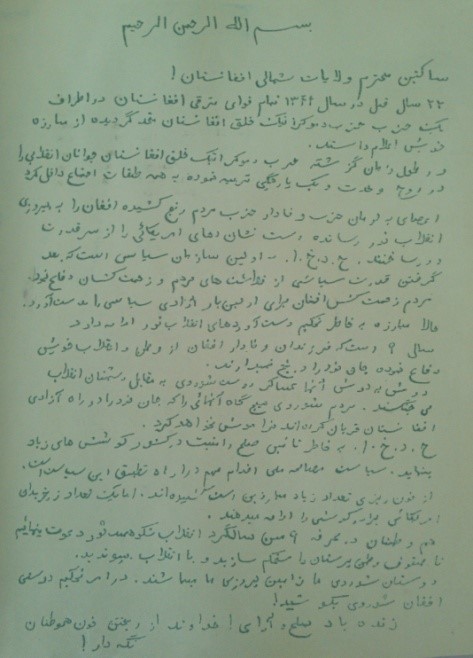 بسم الله الرحمن الرحیم
ساکنین محترم ولایات شمالی افغانستان!
۲۲ سال قبل در سال ۱۳۴۴ تمام قوای مترقی افغانستان در اطراف
یک حزب حزب دموکراتیک خلق افغانستان متحد گردیده از مبارزه
خویش اعلام داشتند.
در طول زمان گذشته حزب دموکراتیک خلق افغانستان جوانان انقلابی را
در روح وحدت و یکپارچگی تربیه نموده به همه طبقات اجتماع داخل کرد
اعضای با ایمان حزب وفادار حزب مردم رنج کشیده افغان را به پیروزی
انقلاب ثور رسانده دست نشان دهای امریکائی را از سر قدرت
دور ساختند. ح.د.خ.ا. اولین سازمان سیاسی است که بعد
گرفتن قدرت سیاسی از خواست های مردم و زحمت کشان دفاع نمود.
مردم زحمت کش افغان برای اولین بار آزادی سیاسی را بدست آورد.
حالا مبارزه به خاطر تحکیم دست آوردهای انقلاب ثور ادامه دارد
سال ۹ است که فرزندان وفادار افغان از وطن و انقلاب خویش
دفاع نموده جان خود را دریغ نمیدارند.
دوش به دوش آنها عساکر دوست شوروی به مقابل دشمنان انقلاب
می جنگند. مردم شوروی هیچگاه آنهائی را که جان خود را در راه آزادی
افغانستان قربان کرده اند فراموش نخواهد کرد.
ح.د.خ.ا. به خاطر تامین صلح و امنیت در کشور کوشش های زیاد
مینماید. سیاست مصالحه ملی اقدام مهم در راه تطبیق این سیاست است.
از خون ریزی تعداد زیاد مبارزین دست کشیده اند. اما یک تعداد زرخریدای
امریکائی برادرکشی را ادامه میدهند.
هم وطنان در عرفه ۹ مین سالگرد انقلاب شکوهمند ثور دعوت مینمائیم
تا صفوف وطن پرستان را مستحکم سازید و با انقلاب بپیوندید.
دوستان شوروی ما ضامین پیروزی ما میباشند. در امر تحکیم دوستی
افغان شوروی بکوشید!
زنده باد صلح و آزادی! خداوند از ریختن خون هموطنان
نگه دارد!